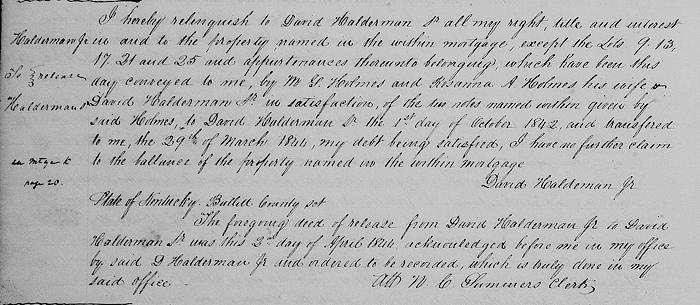 I hereby relinquish to David Halderman Sr all my right, title and interest
in and to the property named in the within mortgage, except the Lots 9. 13,
17. 21 and 25 and appurtenances thereunto belonging, which have been this
day conveyed to me, by M G Holmes and Rosanna A Holmes his wife &
David Halderman Sr in satisfaction, of the two notes named within given by
said Holmes, to David Halderman Sr the 1st day of October 1842, and transfered
to me, the 29th of March 1844, my debt being satisfied, I have no further claim
to the ballance of the property named in the within mortgage
David Haldeman Jr
Halderman Jr
To release
Halderman Sr
on mtge K
page 20.
State of Kentucky. Bullitt County sct
The foregoing deed of release from David Halderman Jr to David
Halderman Sr was this 2nd day of April 1844, acknowledged before me in my office
by said D Halderman Jr and ordered to be recorded, which is truly done in my
said office
Att W C Summers Clerk